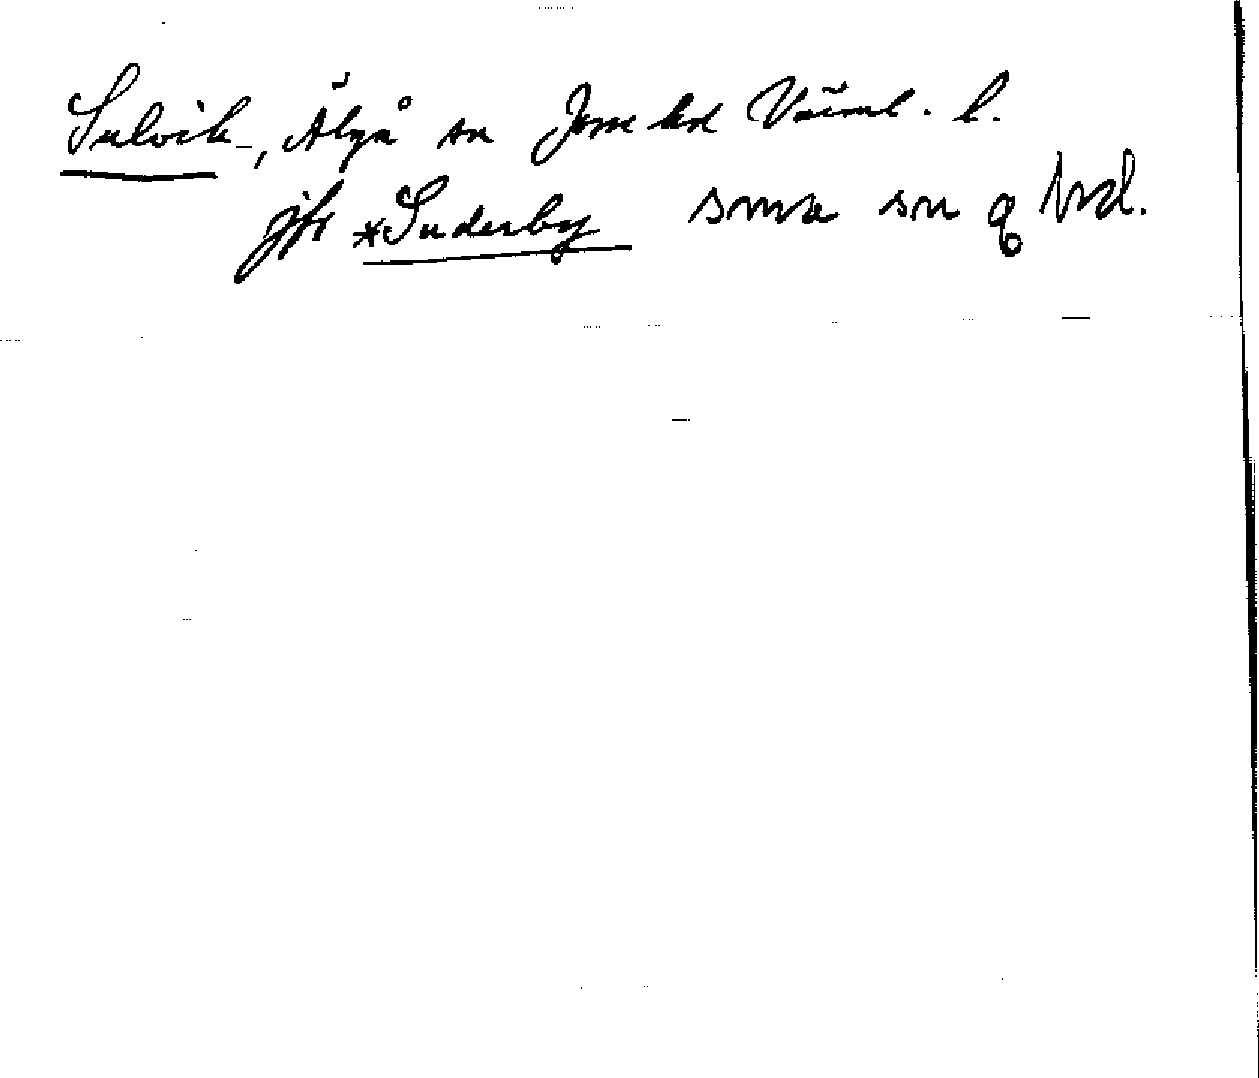 Sulvik, Älgå sn Jösse hd Värml. l.
jfr *Suderby samma sn o hd.